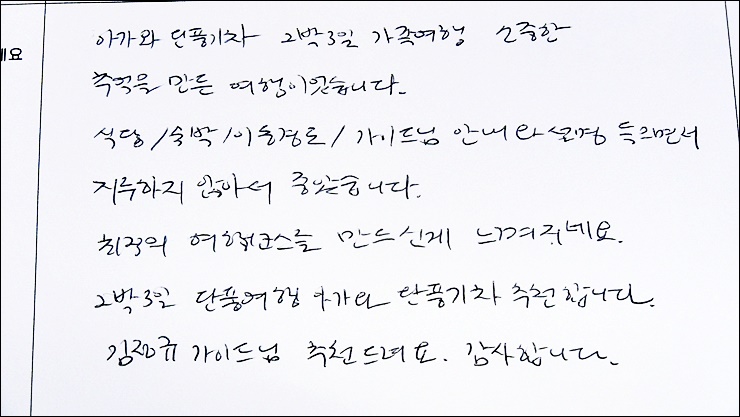 네요
아가와 단풍기차 2박3일 가족여행 소중한
추억을 만든 여행이었습니다.
식당/숙박/이동경로/가이드님 안내와 설명 들으면서
지루하지 않아서 좋았습니다.
최적의 여행코스를 만드신게 느껴지네요.
2박3일 단풍여행 아가와 단풍기차 추천합니다.
가이드님 추천드려요. 감사합니다.